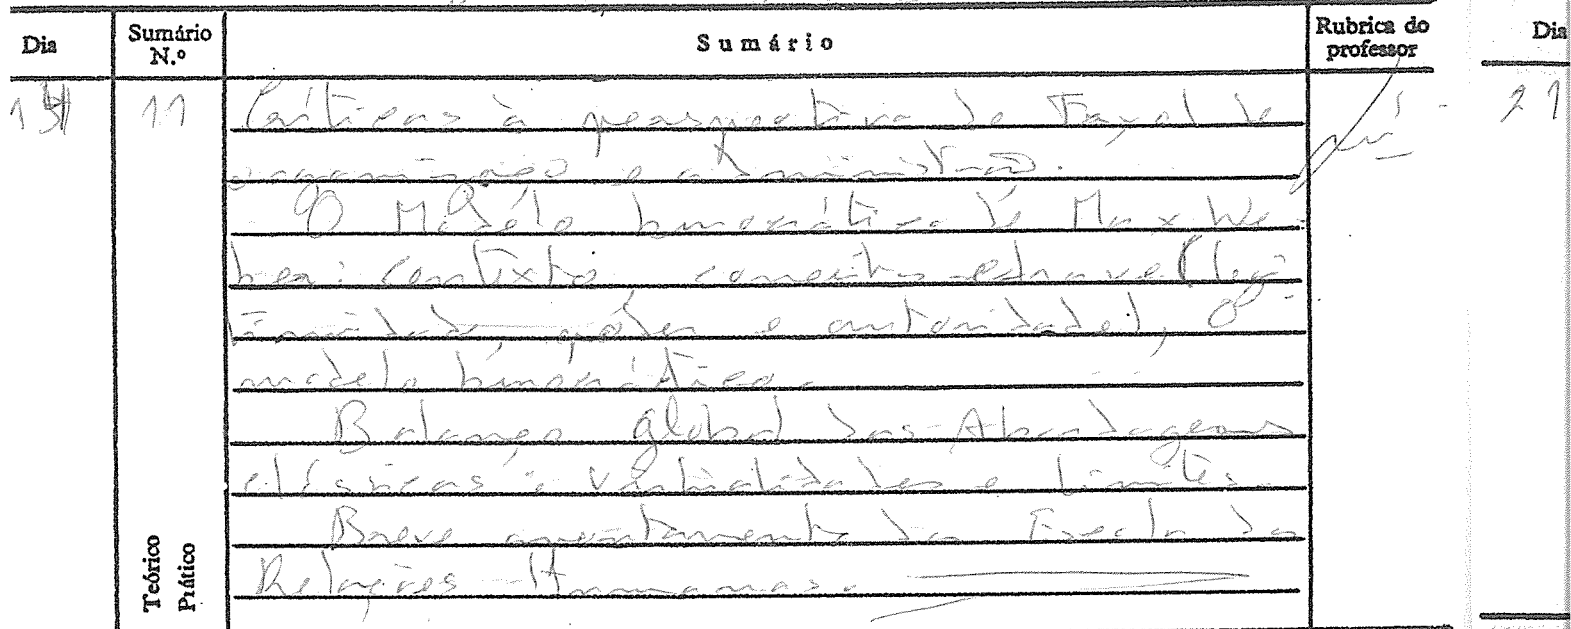 Dia Sumário N.º Sumário Rubrica do professor Dia
11 Críticas à perspectiva de Fayol de 21
organização e administração.
O Modelo burocrático de Max We-
ber: contexto conceitos chave (legi
timidade, poder e autoridade), O
modelo burocrático.
Balanço global das Abordagens
clássicas: virtualidades e limites.
Breve apontamento da Escola das
Relações Humanas.
Teórico
Prático